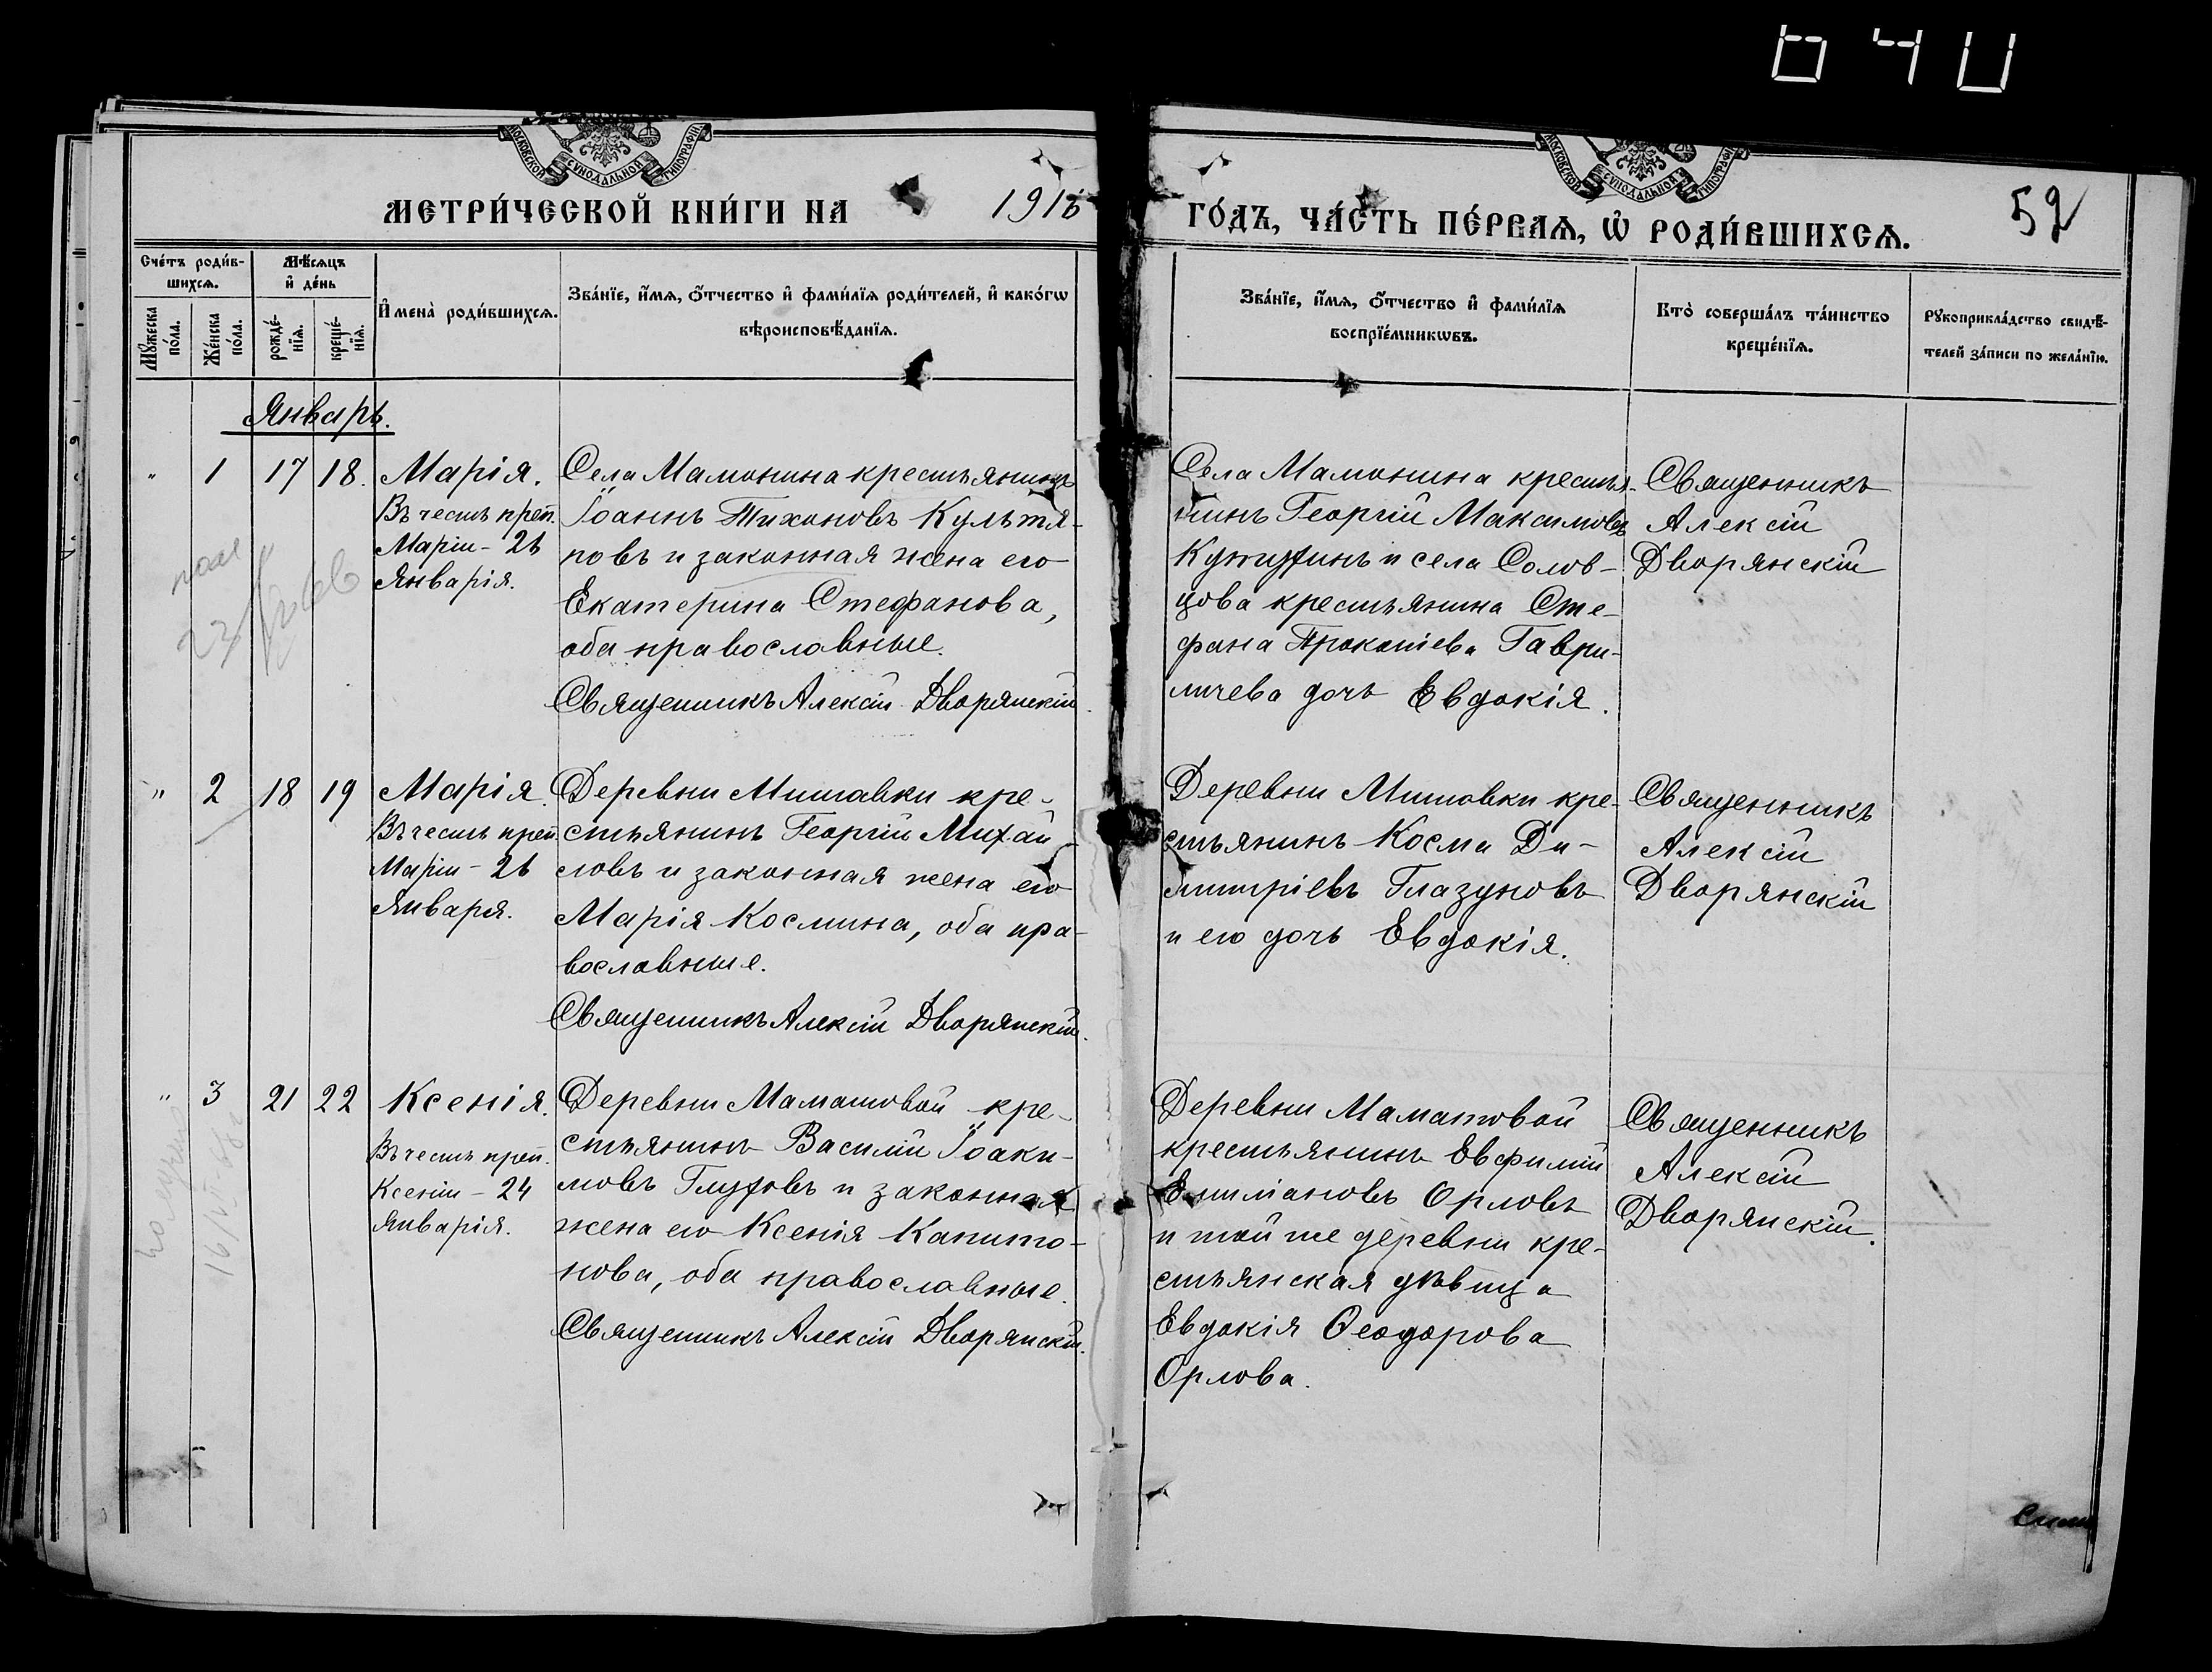 640
МОСКОВСКОЙ СУНОДАЛЬНОЙ ТИПОГРАФІИ
МОСКОВСКОЙ СУНОДАЛЬНОЙ ТИПОГРАФІИ
МЕТРИ́ЧЕСКОЙ КНИ́ГИ НА 191
ГО́ДЪ, ЧА́СТЬ ПЕ́РВАѦ, Ѡ҆ РОДИ́ВШИХСѦ.
52
Сче́тъ роди́в-
шихсѧ.
Мѣ́сѧцъ
и҆ де́нь
Мꙋ́жеска
по́ла.
Же́нска
по́ла.
рожде́-
нїѧ.
креще́-
нїѧ.
И҆мена̀ роди́вшихсѧ.
Зва́нїе, и҆́мѧ, ѻ҆́тчество и҆ фами́лїѧ роди́телей, и҆ како́гѡ
вѣроисповѣ́данїѧ.
Зва́нїе, и҆́мѧ, ѻ҆́тчество и҆ фами́лїѧ
воспрїе́мникѡвъ.
Кто̀ соверша́лъ та́инство
креще́нїѧ.
Рꙋкоприкла́дство свидѣ́-
телей за́писи по жела́нїю.
Январь.
" 1 17 18.
Марія.
Въ честь преп.
Маріи - 26
Января.
Села Мамонина крестьянинъ
Іоаннъ Тихоновъ Культя-
повъ и законная жена его
Екатерина Стефанова,
оба православные.
Священникъ Алексій Дворянскій.
Села Мамонина крестья-
нинъ Георгій Максимовъ
и села Солов-
цова крестьянина Сте-
фана Прокопіева Гаври-
личева дочь Евдокія.
Священникъ
Алексій
Дворянскій
" 2 18 19
Марія.
Въ честь преп.
Маріи - 26
Января.
Деревни Мишавки кре-
стьянинъ Георгій Михай-
ловъ и законная жена его
Марія Космина, оба пра-
вославные.
Священникъ Алексій Дворянскій.
Деревни Мишавки кре-
стьянинъ Косма Ди-
митріевъ Глазуновъ
и его дочь Евдокія.
Священникъ
Алексій
Дворянскій
" 3 21 22
Ксенія.
Въ честь преп.
Ксеніи - 24
Января.
Деревни Маматовой кре-
стьянинъ Василій Іоаки-
мовъ Глуховъ и законная
жена его Ксенія Капито-
нова, оба православные.
Священникъ Алексій Дворянскій.
Деревни Маматовой
крестьянинъ Евфимій
Емиліановъ Орловъ
и той же деревни кре-
стьянская дѣвица
Евдокія Ѳеодорова
Орлова.
Священникъ
Алексій
Дворянскій.